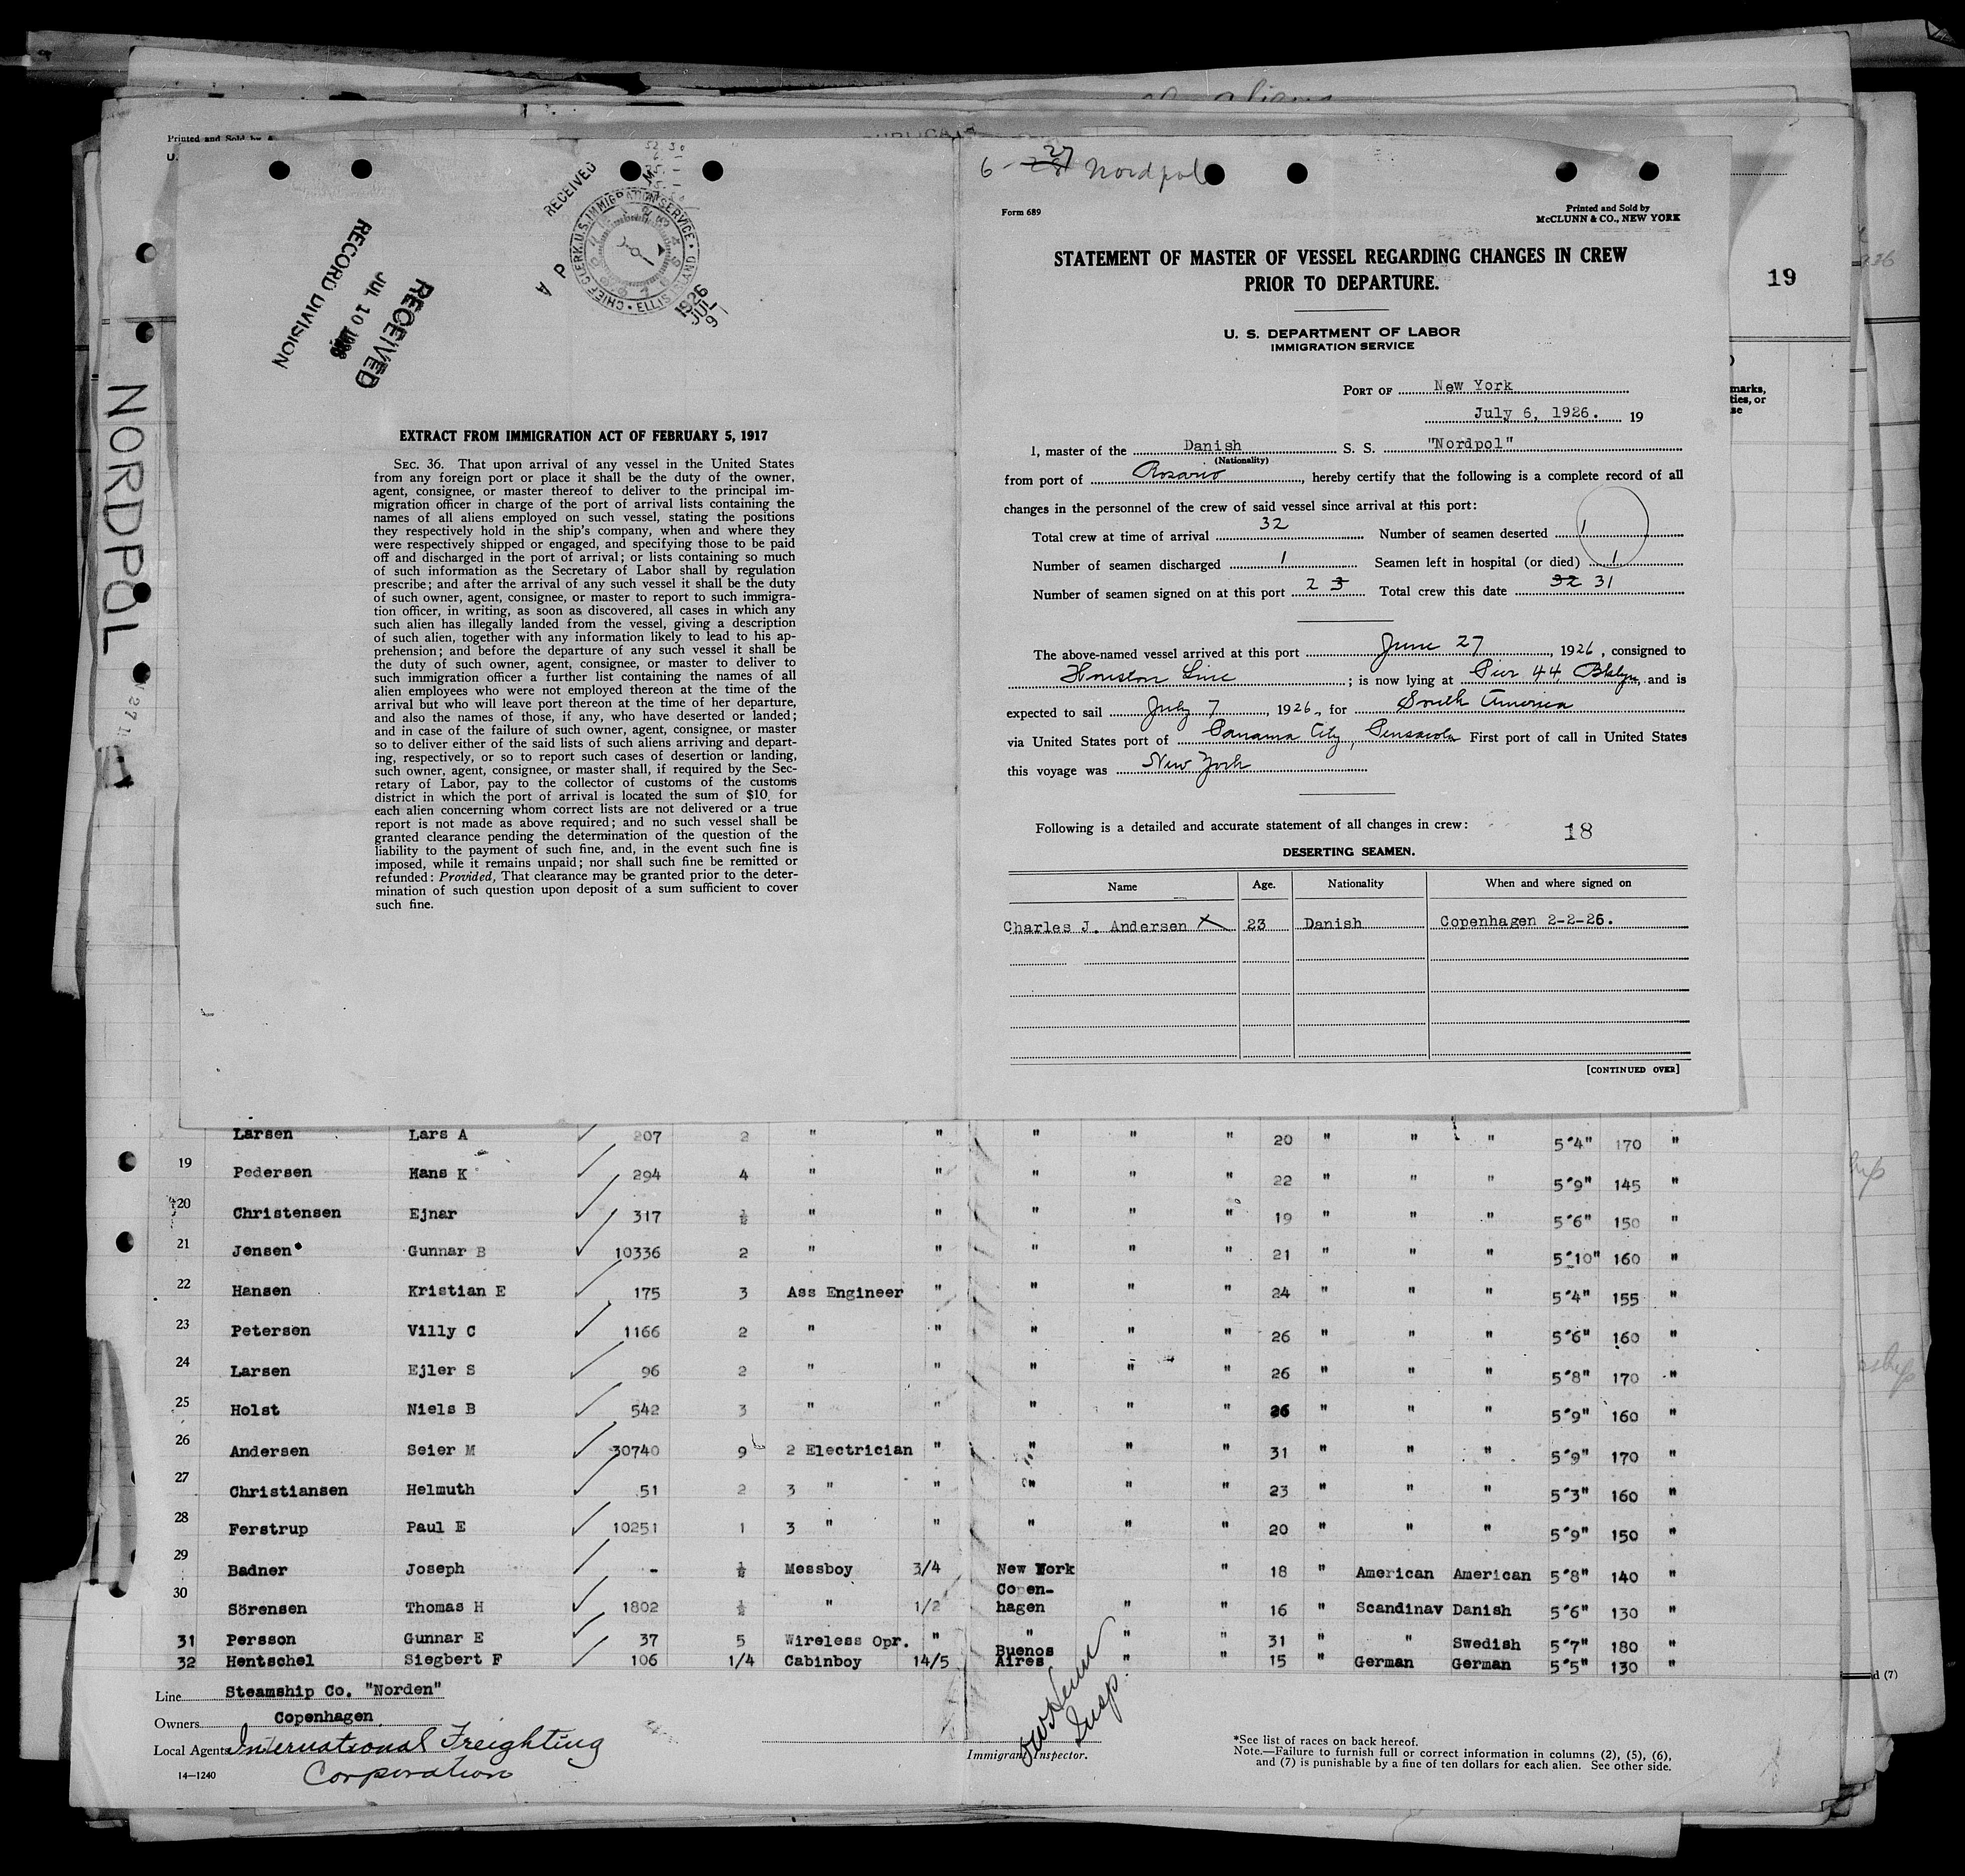 Printed and Sold by
U.
19
marks,
ties, or
se
NORDPOL
RECEIVED
JUL 10 1926
RECORD DIVISION
RECEIVED
CHIEF CLERK. U.S. IMMIGRATION SERVICE • ELLIS ISLAND •
1926
JUL 9
A P
EXTRACT FROM IMMIGRATION ACT OF FEBRUARY 5, 1917
SEC. 36. That upon arrival of any vessel in the United States
from any foreign port or place it shall be the duty of the owner,
agent, consignee, or master thereof to deliver to the principal im-
migration officer in charge of the port of arrival lists containing the
names of all aliens employed on such vessel, stating the positions
they respectively hold in the ship's company, when and where they
were respectively shipped or engaged, and specifying those to be paid
off and discharged in the port of arrival; or lists containing so much
of such information as the Secretary of Labor shall by regulation
prescribe; and after the arrival of any such vessel it shall be the duty
of such owner, agent, consignee, or master to report to such immigra-
tion officer, in writing, as soon as discovered, all cases in which any
such alien has illegally landed from the vessel, giving a description
of such alien, together with any information likely to lead to his ap-
prehension; and before the departure of any such vessel it shall be
the duty of such owner, agent, consignee, or master to deliver to
such immigration officer a further list containing the names of all
alien employees who were not employed thereon at the time of the
arrival but who will leave port thereon at the time of her departure,
and also the names of those, if any, who have deserted or landed;
and in case of the failure of such owner, agent, consignee, or master
so to deliver either of the said lists of such aliens arriving and depart-
ing, respectively, or so to report such cases of desertion or landing,
such owner, agent, consignee, or master shall, if required by the Sec-
retary of Labor, pay to the collector of customs of the customs
district in which the port of arrival is located the sum of $10 for
each alien concerning whom correct lists are not delivered or a true
report is not made as above required; and no such vessel shall be
granted clearance pending the determination of the question of the
liability to the payment of such fine, and, in the event such fine is
imposed, while it remains unpaid; nor shall such fine be remitted or
refunded: Provided, That clearance may be granted prior to the deter-
mination of such question upon deposit of a sum sufficient to cover
such fine.
6 - 27 Nordpol
Form 689
Printed and Sold by
McCLUNN & CO., NEW YORK
STATEMENT OF MASTER OF VESSEL REGARDING CHANGES IN CREW
PRIOR TO DEPARTURE.
U. S. DEPARTMENT OF LABOR
IMMIGRATION SERVICE
PORT OF New York
July 6, 1926. 19
I, master of the Danish S. S. "Nordpol"
(Nationality)
from port of Rosario, hereby certify that the following is a complete record of all
changes in the personnel of the crew of said vessel since arrival at this port:
Total crew at time of arrival 32 Number of seamen deserted 1
Number of seamen discharged 1 Seamen left in hospital (or died) 1
Number of seamen signed on at this port 2 3 Total crew this date 32 31
The above-named vessel arrived at this port June 27, 1926, consigned to
Houston Line; is now lying at Pier 44 Bklyn, and is
expected to sail July 7, 1926, for South America
via United States port of Panama City, Pensacola First port of call in United States
this voyage was New York
Following is a detailed and accurate statement of all changes in crew:
18
DESERTING SEAMEN.
Name Age. Nationality When and where signed on
Charles J. Andersen X 23 Danish Copenhagen 2-2-26.
[CONTINUED OVER]
Larsen Lars A 207 2 " " " " " 20 " " " 5"4" 170 "
19 Pedersen Hans K 294 4 " " " " " 22 " " " 5"9" 145 "
20 Christensen Ejnar 317 ½ " " " " " 19 " " " 5"6" 150 "
21 Jensen Gunnar B 10336 2 " " " " " 21 " " " 5"10" 160 "
22 Hansen Kristian E 175 3 Ass Engineer " " " " 24 " " " 5"4" 155 "
23 Petersen Villy C 1166 2 " " " " " 26 " " " 5"6" 160 "
24 Larsen Ejler S 96 2 " " " " " 26 " " " 5"8" 170 "
25 Holst Niels B 542 3 " " " " " 26 " " " 5"9" 160 "
26 Andersen Seier M 30740 9 2 Electrician " " " " 31 " " " 5"9" 170 "
27 Christiansen Helmuth 51 2 3 " " " " " 23 " " " 5"3" 160 "
28 Ferstrup Paul E 10251 1 3 " " " " " 20 " " " 5"9" 150 "
29 Badner Joseph - ½ Messboy 3/4 New York " 18 " American American 5"8" 140
30 Sörensen Thomas H 1802 ½ " 1/2 Copen-
hagen " " 16 " Scandinav Danish 5"6" 130 "
31 Persson Gunnar E 37 5 Wireless Opr. " " " " 31 " " Swedish 5"7" 180 "
32 Hentschel Siegbert F 106 1/4 Cabinboy 14/5 Buenos
Aires " " 15 " German German 5"5" 130 "
Line Steamship Co. "Norden"
Owners Copenhagen
Local Agents International Freighting
Corporation
14—1240
Insp.
Immigrant Inspector.
*See list of races on back hereof.
Note.—Failure to furnish full or correct information in columns (2), (5), (6),
and (7) is punishable by a fine of ten dollars for each alien. See other side.
d (7)